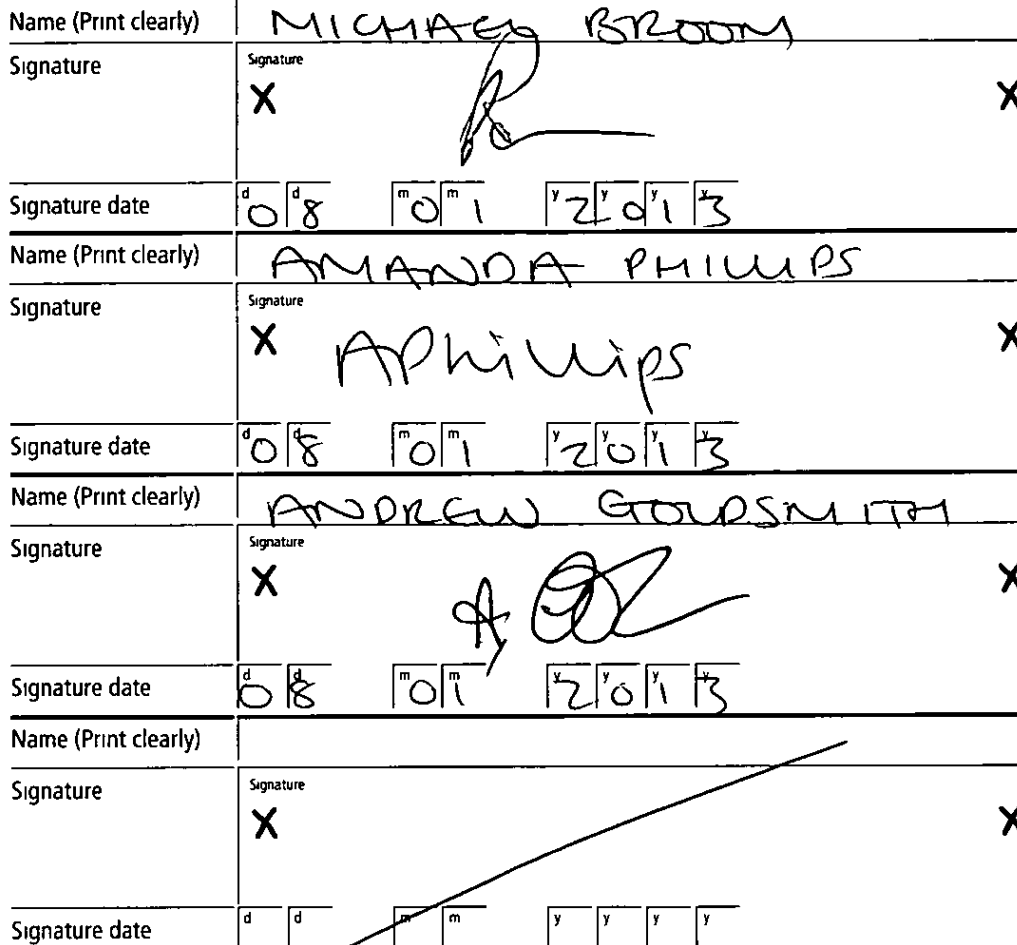 Name (Print clearly) MICHAEL BROOM
Signature Signature
X X
Signature date d 0 d 8 m 0 m 1 y 2 y 0 y 1 y 3
Name (Print clearly) AMANDA PHILLIPS
Signature Signature
X APhillips X
Signature date d 0 d 8 m 0 m 1 y 2 y 0 y 1 y 3
Name (Print clearly) ANDREW GOLDSMITH
Signature Signature
X X
Signature date d 0 d 8 m 0 m 1 y 2 y 0 y 1 y 3
Name (Print clearly)
Signature Signature
X X
Signature date d d m m y y y y